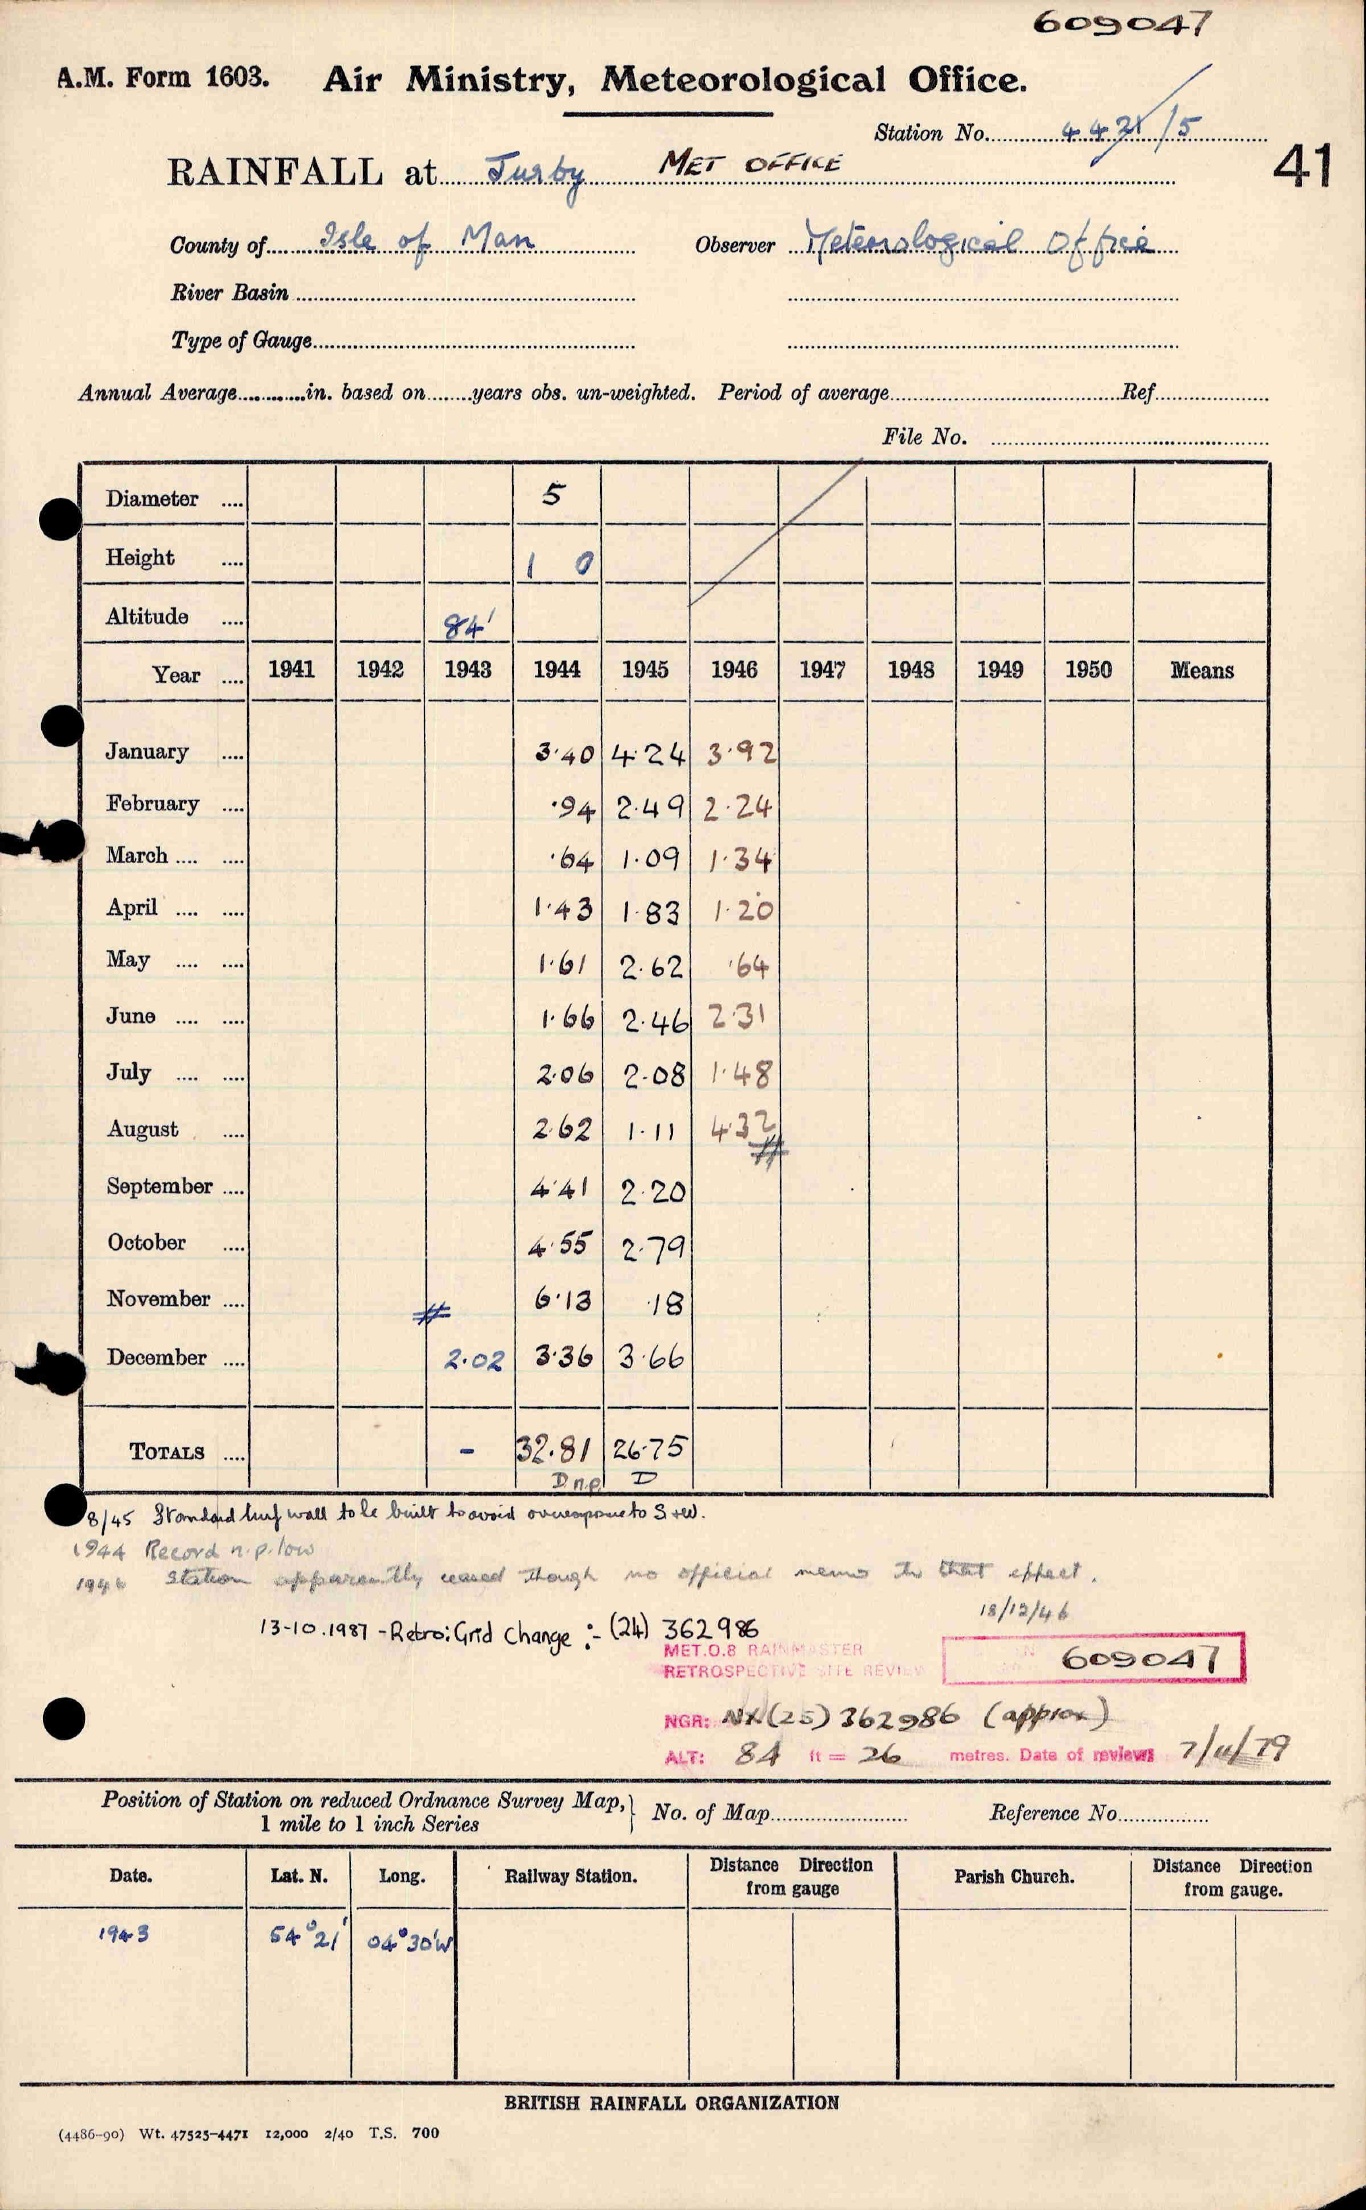 609047
A.M. Form 1603. Air Ministry, Meteorological Office.
Station No. 4421/5
41
RAINFALL at Jurby MET OFFICE
County of Isle of Man Observer Meteorological Office
River Basin
Type of Gauge
Annual Average in. based on years obs. un-weighted. Period of average Ref.
File No.
Diameter .... 5
Height .... 1 0
Altitude .... 84'
Year .... 1941 1942 1943 1944 1945 1946 1947 1948 1949 1950 Means
January .... 3.40 4.24 3.92
February .... .94 2.49 2.24
March .... .... .64 1.09 1.34
April .... .... 1.43 1.83 1.20
May .... .... 1.61 2.62 .64
June .... .... 1.66 2.46 2.31
July .... .... 2.06 2.08 1.48
August .... 2.62 1.11 4.32
September .... 4.41 2.20
October .... 4.55 2.79
November .... 6.13 .18
December .... 2.02 3.36 3.66
TOTALS .... - 32.81 26.75
D n.p. D
8/45 Standard turf wall to be built to avoid overexposure to S+W.
1944 Record n.p. low
1946 Station apparently ceased though no official memo to that effect.
18/12/46
13-10.1987 - Retro: Grid Change :- (24) 362986
MET.O.8 RAINMASTER
RETROSPECTIVE SITE REVIEW
609047
NGR: NX (25) 362986 (approx)
ALT: 84 ft = 26 metres. Date of reviews 7/11/79
Position of Station on reduced Ordnance Survey Map, 1 mile to 1 inch Series No. of Map Reference No.
Date. Lat. N. Long. Railway Station. Distance Direction from gauge Parish Church. Distance Direction from gauge.
1943 54°21' 04°30'W
BRITISH RAINFALL ORGANIZATION
(4486-90) Wt. 47525-4471 12,000 2/40 T.S. 700